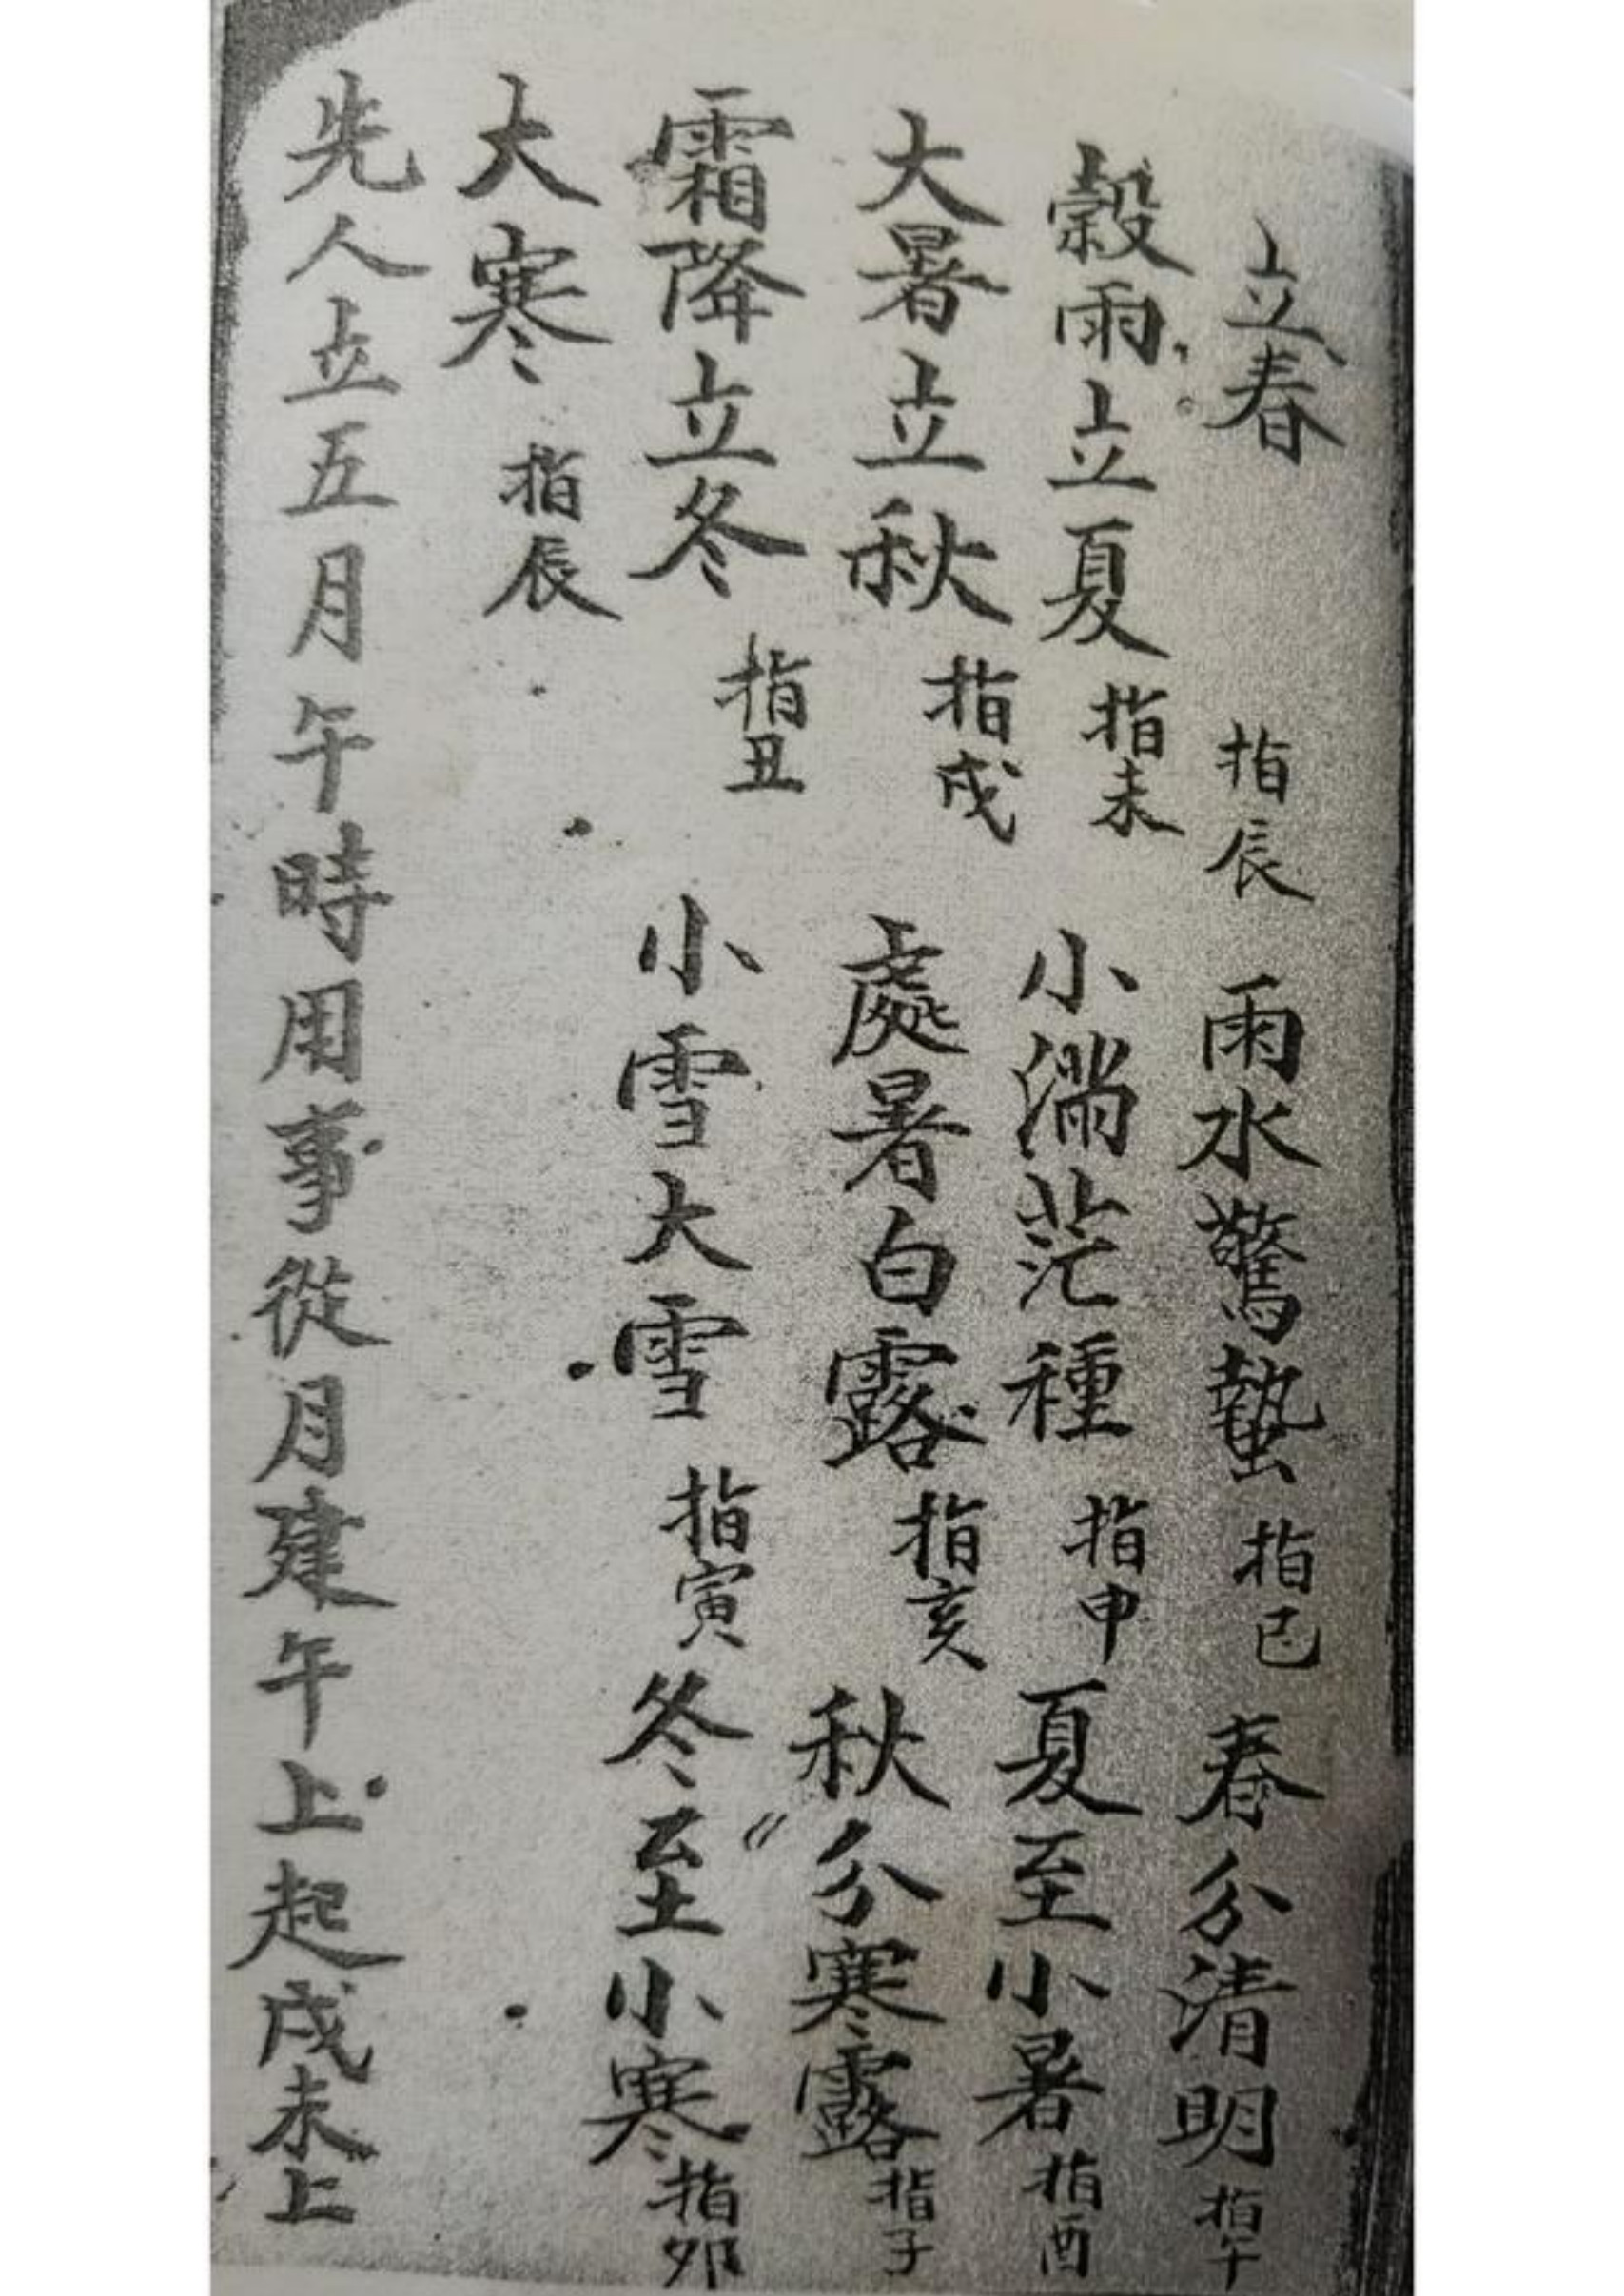 立春 指辰 雨水驚蟄 指巳 春分清明 指午
穀雨立夏 指未 小滿茫種 指申 夏至小暑 指酉
大暑立秋 指戌 處暑白露 指亥 秋分寒露 指子
霜降立冬 指丑 小雪大雪 指寅 冬至小寒 指卯
大寒 指辰
先人立五月午時用事從月建午上起戌未上